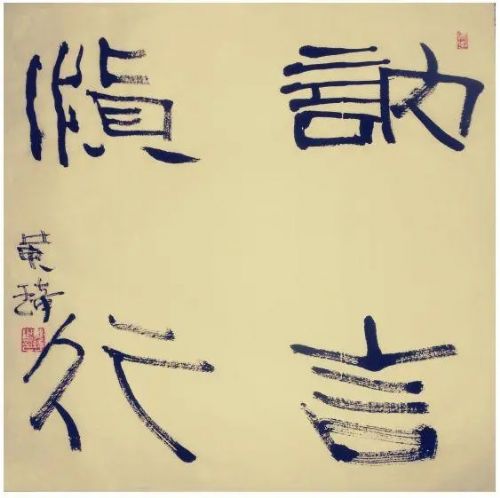 訥言
慎行
黄琦